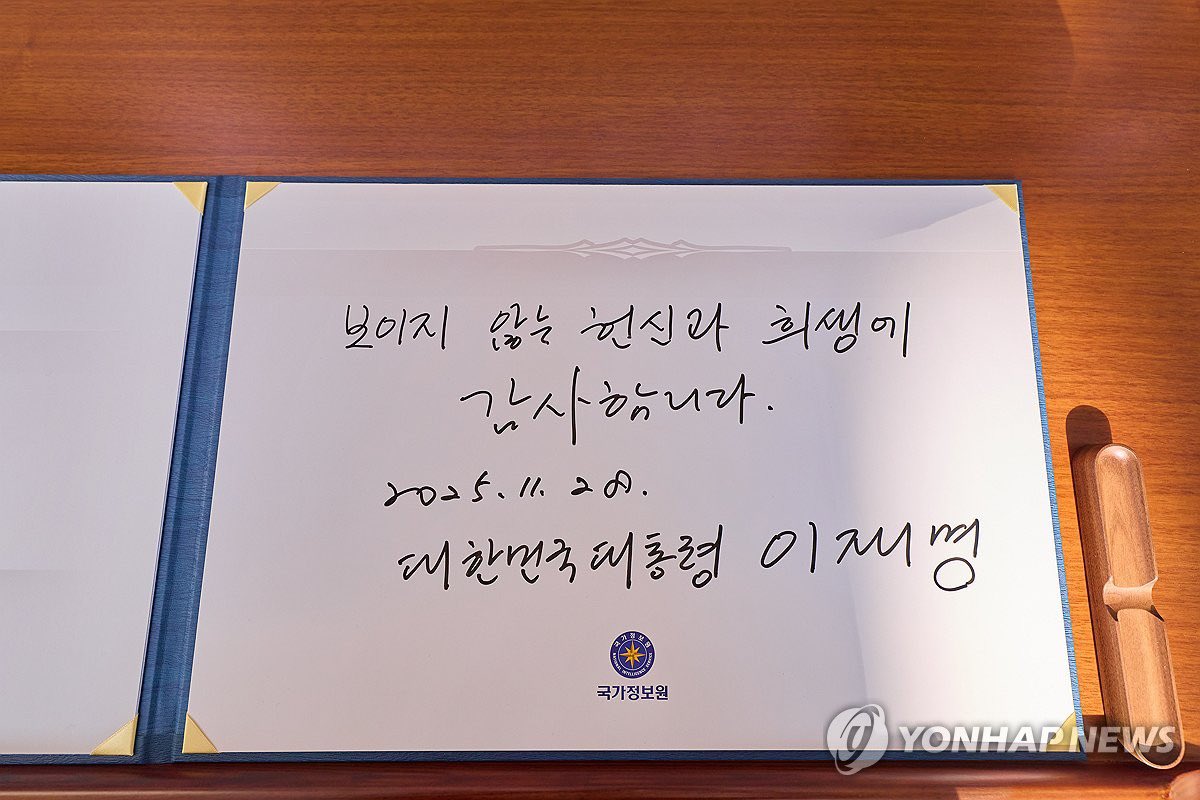 보이지 않는 헌신과 희생에
감사합니다.
2025. 11. 28.
대한민국 대통령 이재명
국가정보원
NATIONAL INTELLIGENCE SERVICE
국가정보원
YONHAP NEWS